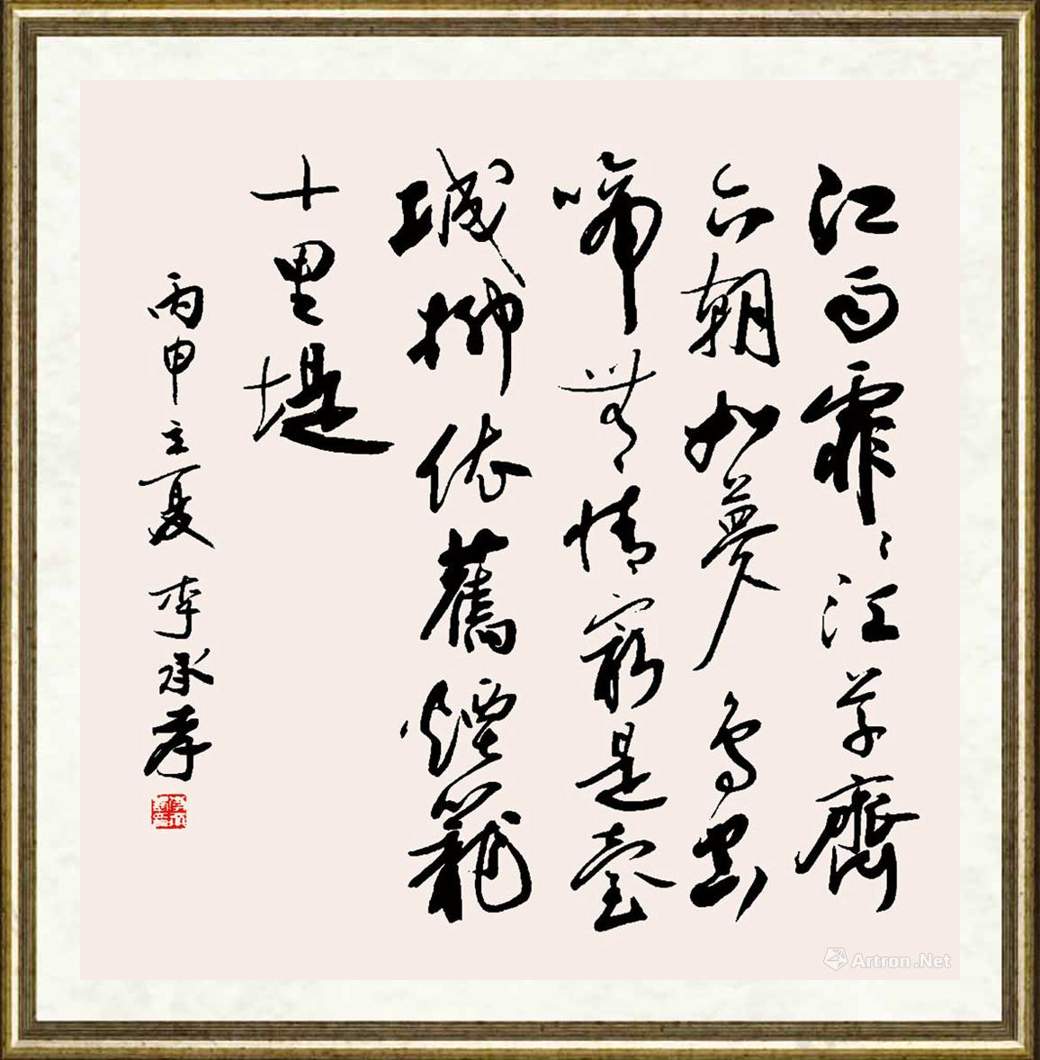 江雨霏〻江草齊
六朝如夢鳥空
啼無情最是臺
城柳依舊煙籠
十里堤
丙申立夏 李承孝
Artron.Net